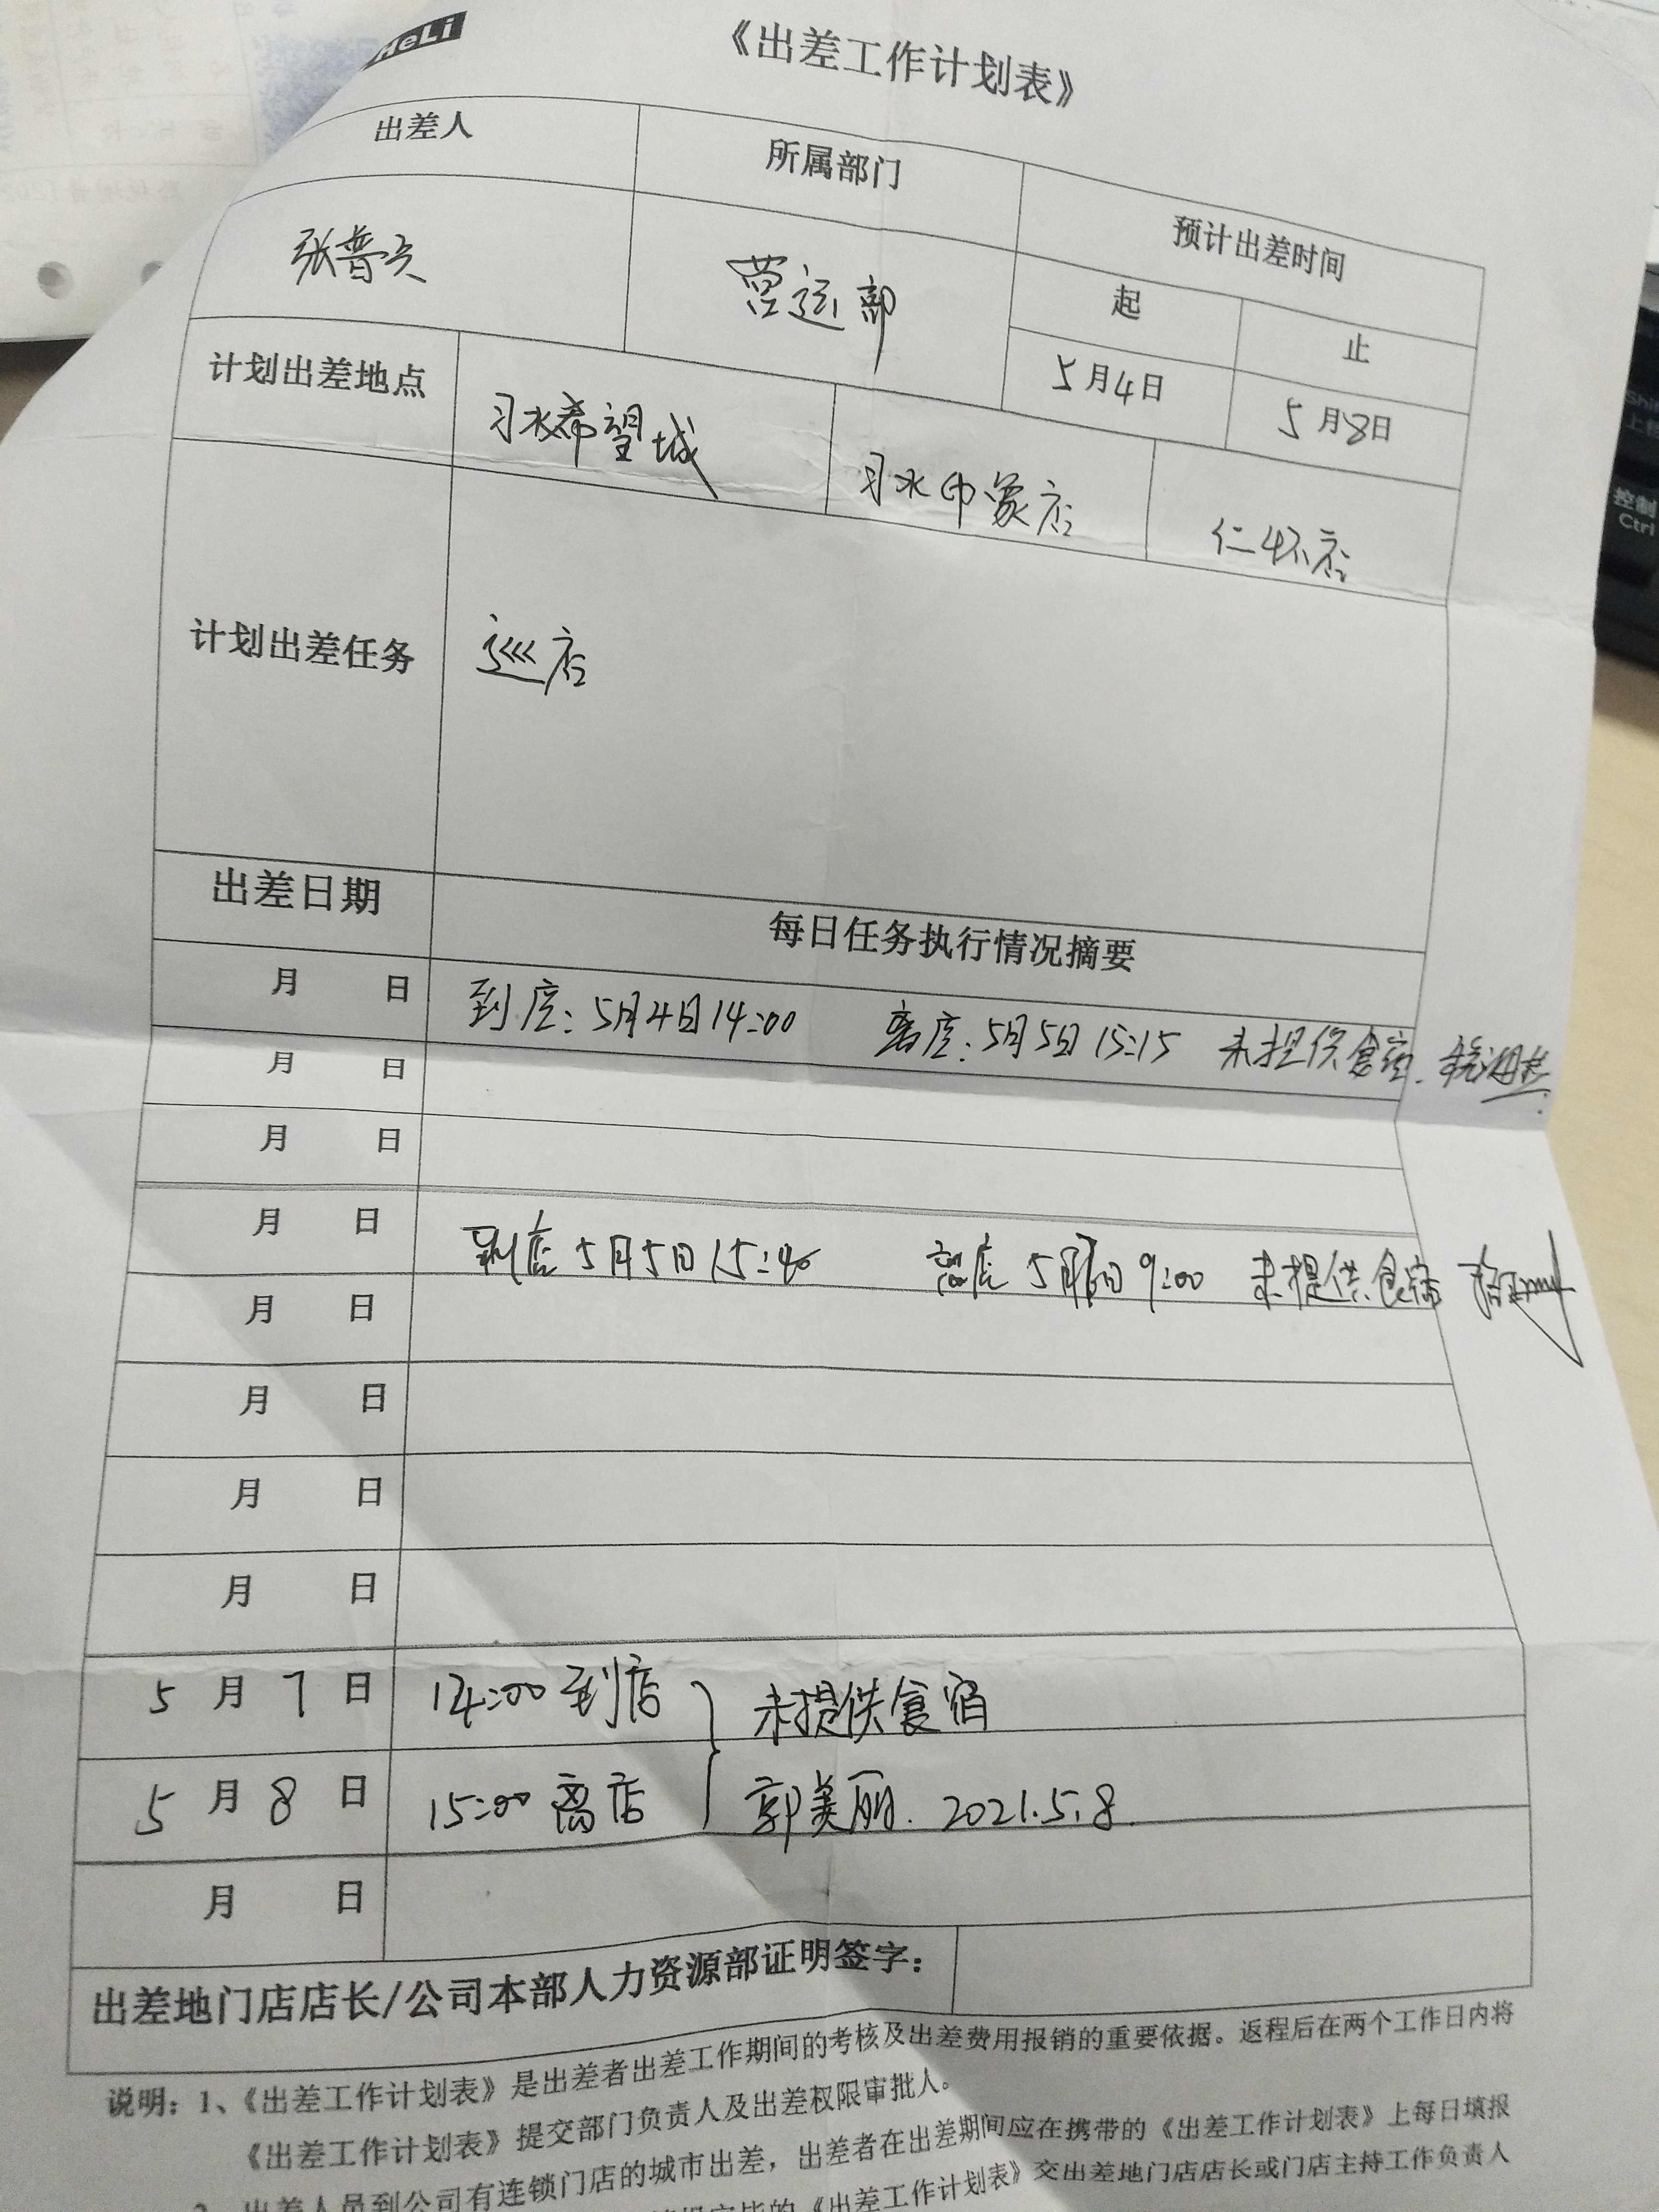 HeLi
《出差工作计划表》
出差人 所属部门 预计出差时间
起 止
张普
营运部
5月4日 5月8日
计划出差地点 习水希望城 习水印象店 仁怀店
计划出差任务 巡店
出差日期 每日任务执行情况摘要
月 日 到店:5月4日14:00 离店:5月5日15:15 未提供食宿.
月 日
月 日
月 日 到店5月5日15:40 离店5月 日9:00 未提供食宿
月 日
月 日
月 日
月 日
5月7日 14:00到店 未提供食宿
5月8日 15:00离店 郭美丽. 2021.5.8.
月 日
出差地门店店长/公司本部人力资源部证明签字:
说明: 1、《出差工作计划表》是出差者出差工作期间的考核及出差费用报销的重要依据。返程后在两个工作日内将
《出差工作计划表》提交部门负责人及出差权限审批人。
2、出差人员到公司有连锁门店的城市出差,出差者在出差期间应在携带的《出差工作计划表》上每日填报
《出差工作计划表》交出差地门店店长或门店主持工作负责人
Shift
上档
控制
Ctrl